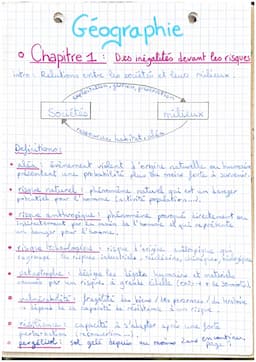 Géographie
Chapitre 1 : Des inégalités devant les risques
intro : Relations entre les sociétés et leurs milieux.
exploitation, gestion, prévention
Sociétés milieux
ressources, habitat, aléa
Définitions :
• aléa : évènement violent d'origine naturelle ou humaine
présentant une probabilité plus ou moins forte à survenir.
• risque naturel : phénomène naturel qui est un danger
potentiel pour l'homme
• risque anthropique : phénomène provoqué directement ou
indirectement par la main de l'homme et qui représente
un danger pour l'homme.
• risque technologique : risque d'origine anthropique qui
regroupe les risques industriels, nucléaires, chimiques, biologiques
• catastrophe : désigne les dégâts humains et matériels
causés par un risque à grande échelle
• vulnérabilité : fragilité des biens / des personnes / du territoire
→ dépend de la capacité de résistance à un risque.
• résilience : capacité à s'adapter après une forte
perturbation
• pergélisol : sol gelé depuis au moins 2 ans
page 1